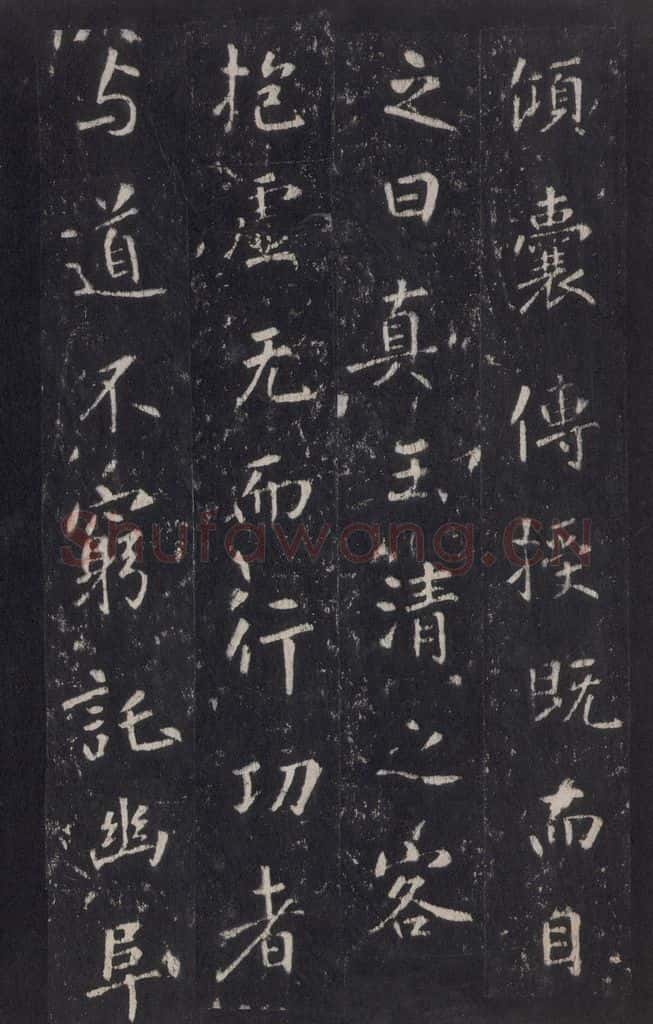 傾囊傳授既而目
之曰真玉清之客
抱虛无而行功者
与道不窮託幽阜
Shufawang.CN